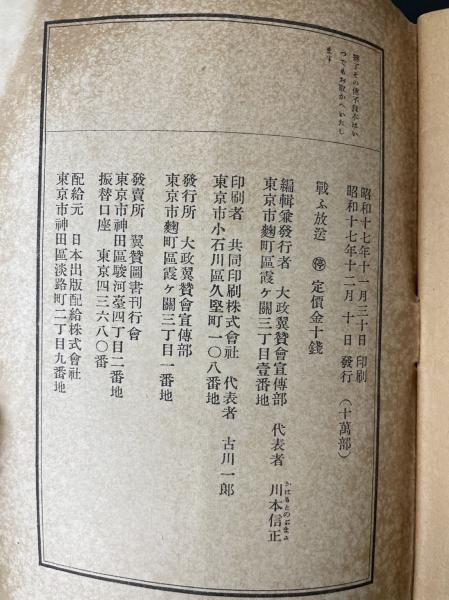 落丁その他不良本はい
つでもお取かへいたし
ます
昭和十七年十一月三十日 印刷
昭和十七年十二月 十 日 發行 (十萬部)
戰ふ放送 ㊡ 定價金十錢
編輯兼發行者 大政翼贊會宣傳部 代表者 川本信正
かはもとのぶまさ
東京市麴町區霞ヶ關三丁目壹番地
印刷者 共同印刷株式會社 代表者 古川一郎
東京市小石川區久堅町一〇八番地
發行所 大政翼贊會宣傳部
東京市麴町區霞ヶ關三丁目一番地
發賣所 翼贊圖書刊行會
東京市神田區駿河臺四丁目二番地
振替口座 東京四三六八〇番
配給元 日本出版配給株式會社
東京市神田區淡路町二丁目九番地